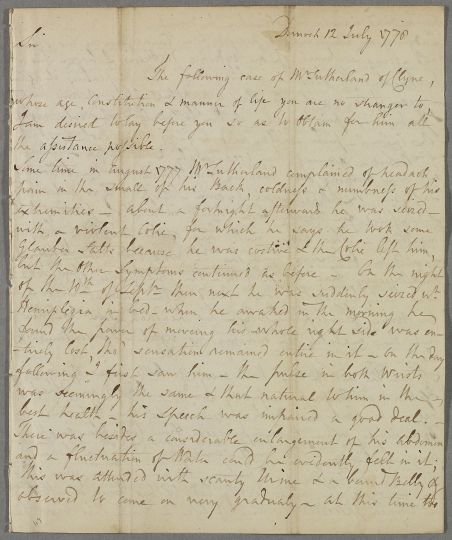 Dornoch 12 July 1778
Sir
The following case of Mr Sutherland of Clyne,
whose age, Constitution & manner of life you are no stranger to
I am desired to lay before you so as to obtain for him all
the assistance possible.
Some time in August 1777 Mr Sutherland complained of headach
pain in the small of his Back, coldness & numbness of his
extremities – about a fortnight afterward he was seized
with a violent Colic, for which he says he took some
Glauber Salts because he was costive & the Colic left him
but the other symptoms continued as before – On the night
of the 10th of Septr then next he was suddenly seized wt
Hemiplegia in bed – when he awaked in the morning he
found the power of moving his whole right side was en-
tirely lost, tho' sensation remained entire in it – on the day
following I first saw him – the pulse in both Wrists
was seemingly the same & that natural to him in the
best health – his speech was impaired a good deal. –
There was besides a considerable enlargement of his abdomen
and a fluctuation of Water could be evidently felt in it;
This was attended with scanty Urine & a bound Belly &
observed to come on very gradualy – at this time the